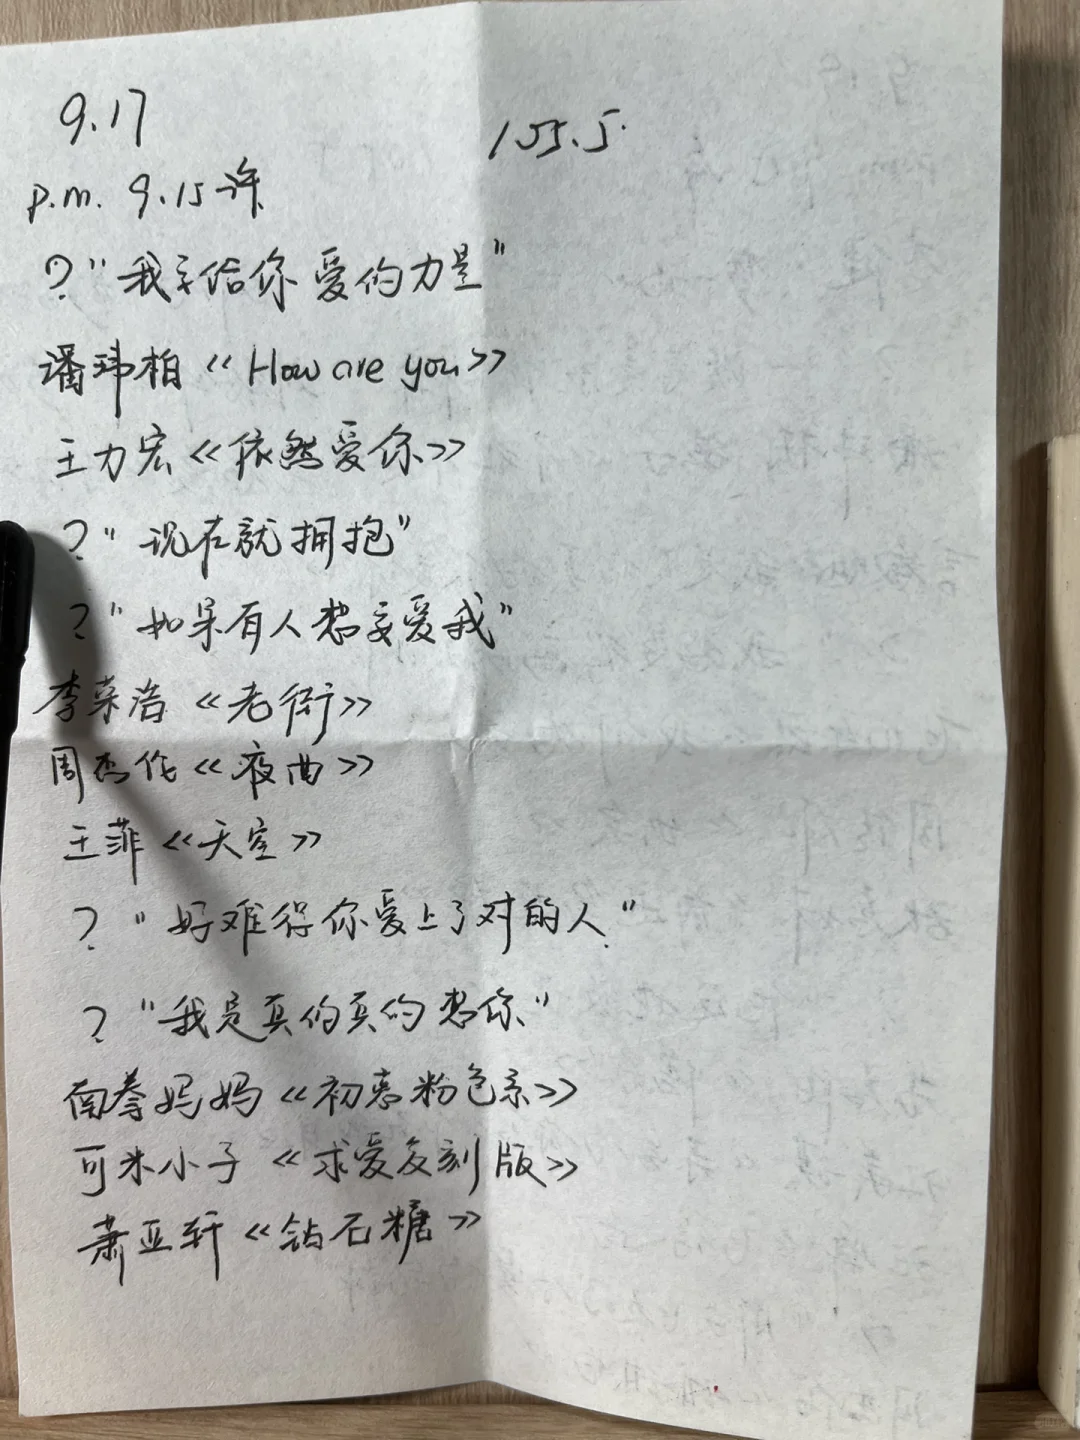 9.17
155.5.
p.m. 9.15许
? "我予给你爱的力量"
潘玮柏《How are you》
王力宏《依然爱你》
? "现在就拥抱"
? "如果有人想要爱我"
李荣浩《老街》
周杰伦《夜曲》
王菲《天空》
? "好难得你爱上了对的人"
? "我是真的真的想你"
南拳妈妈《初恋粉色系》
可米小子《求爱复刻版》
萧亚轩《钻石糖》